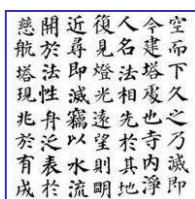 空而下久之乃滅即
今建塔處也寺内淨
人名法相先於其地
復見燈光遠望則明
近尋即滅竊以水流
開於法性舟泛表於
慈航塔現兆於有成